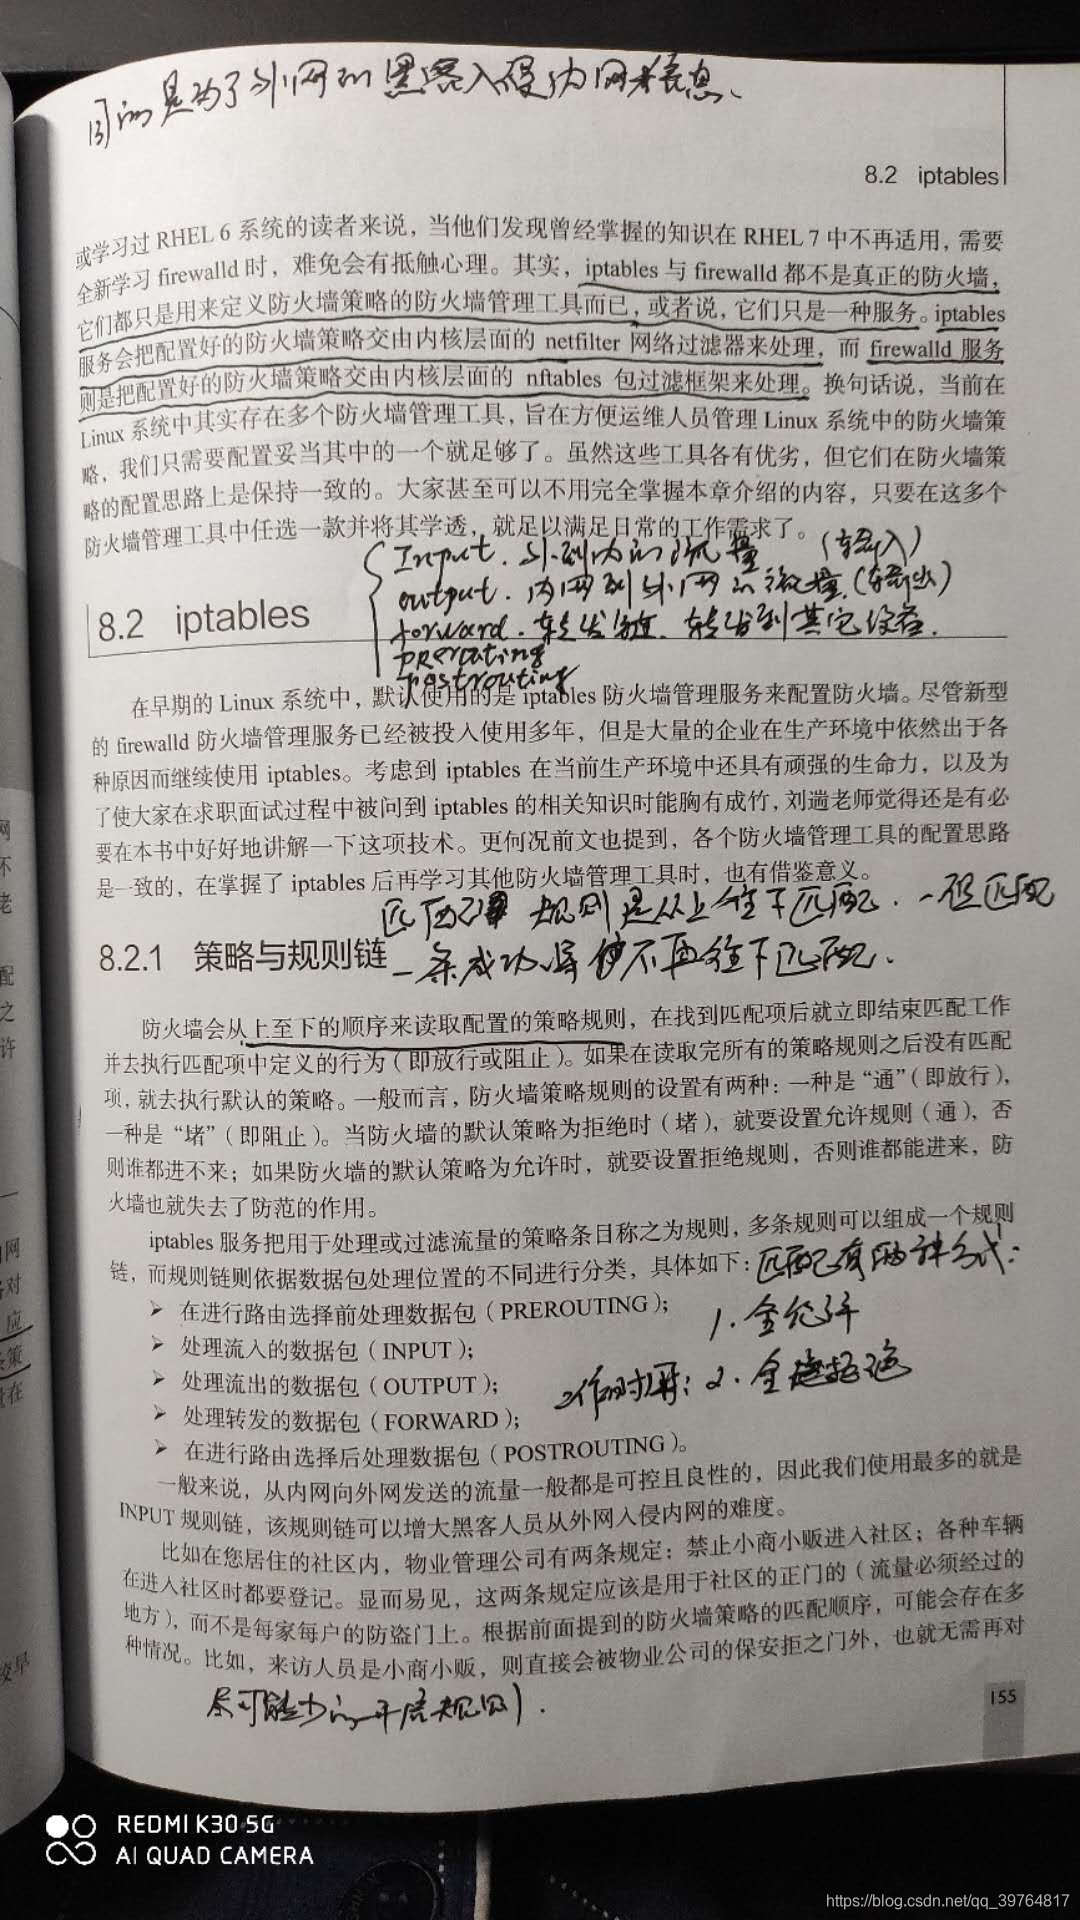 的是为了外网的黑客入侵内网
8.2 iptables
或学习过 RHEL 6 系统的读者来说，当他们发现曾经掌握的知识在 RHEL 7 中不再适用，需要
全新学习 firewalld 时，难免会有抵触心理。其实，iptables 与 firewalld 都不是真正的防火墙，
它们都只是用来定义防火墙策略的防火墙管理工具而已，或者说，它们只是一种服务。iptables
服务会把配置好的防火墙策略交由内核层面的 netfilter 网络过滤器来处理，而 firewalld 服务
则是把配置好的防火墙策略交由内核层面的 nftables 包过滤框架来处理。换句话说，当前在
Linux 系统中其实存在多个防火墙管理工具，旨在方便运维人员管理 Linux 系统中的防火墙策
略，我们只需要配置妥当其中的一个就足够了。虽然这些工具各有优劣，但它们在防火墙策
略的配置思路上是保持一致的。大家甚至可以不用完全掌握本章介绍的内容，只要在这多个
防火墙管理工具中任选一款并将其学透，就足以满足日常的工作需求了。
Input. 外到内的流量（输入）
output. 内网到外网的流量.（输出）
8.2 iptables
forward. 转发 转发到其它设备.
prerouting
postrouting
在早期的 Linux 系统中，默认使用的是 iptables 防火墙管理服务来配置防火墙。尽管新型
的 firewalld 防火墙管理服务已经被投入使用多年，但是大量的企业在生产环境中依然出于各
种原因而继续使用 iptables。考虑到 iptables 在当前生产环境中还具有顽强的生命力，以及为
了使大家在求职面试过程中被问到 iptables 的相关知识时能胸有成竹，刘遄老师觉得还是有必
要在本书中好好地讲解一下这项技术。更何况前文也提到，各个防火墙管理工具的配置思路
是一致的，在掌握了 iptables 后再学习其他防火墙管理工具时，也有借鉴意义。
匹配 规则是从上往下匹配. 一但匹配
8.2.1 策略与规则链
一条成功 不再往下匹配.
防火墙会从上至下的顺序来读取配置的策略规则，在找到匹配项后就立即结束匹配工作
并去执行匹配项中定义的行为（即放行或阻止）。如果在读取完所有的策略规则之后没有匹配
项，就去执行默认的策略。一般而言，防火墙策略规则的设置有两种：一种是“通”（即放行），
一种是“堵”（即阻止）。当防火墙的默认策略为拒绝时（堵），就要设置允许规则（通），否
则谁都进不来；如果防火墙的默认策略为允许时，就要设置拒绝规则，否则谁都能进来，防
火墙也就失去了防范的作用。
iptables 服务把用于处理或过滤流量的策略条目称之为规则，多条规则可以组成一个规则
链，而规则链则依据数据包处理位置的不同进行分类，具体如下：
匹配有两种方式：
➢ 在进行路由选择前处理数据包（PREROUTING）；
1. 全允许
➢ 处理流入的数据包（INPUT）；
➢ 处理流出的数据包（OUTPUT）；
工作时用：2. 全拒绝
➢ 处理转发的数据包（FORWARD）；
➢ 在进行路由选择后处理数据包（POSTROUTING）。
一般来说，从内网向外网发送的流量一般都是可控且良性的，因此我们使用最多的就是
INPUT 规则链，该规则链可以增大黑客人员从外网入侵内网的难度。
比如在您居住的社区内，物业管理公司有两条规定：禁止小商小贩进入社区；各种车辆
在进入社区时都要登记。显而易见，这两条规定应该是用于社区的正门的（流量必须经过的
地方），而不是每家每户的防盗门上。根据前面提到的防火墙策略的匹配顺序，可能会存在多
种情况。比如，来访人员是小商小贩，则直接会被物业公司的保安拒之门外，也就无需再对
尽可能少的开启规则.
155
REDMI K30 5G
AI QUAD CAMERA
https://blog.csdn.net/qq_39764817